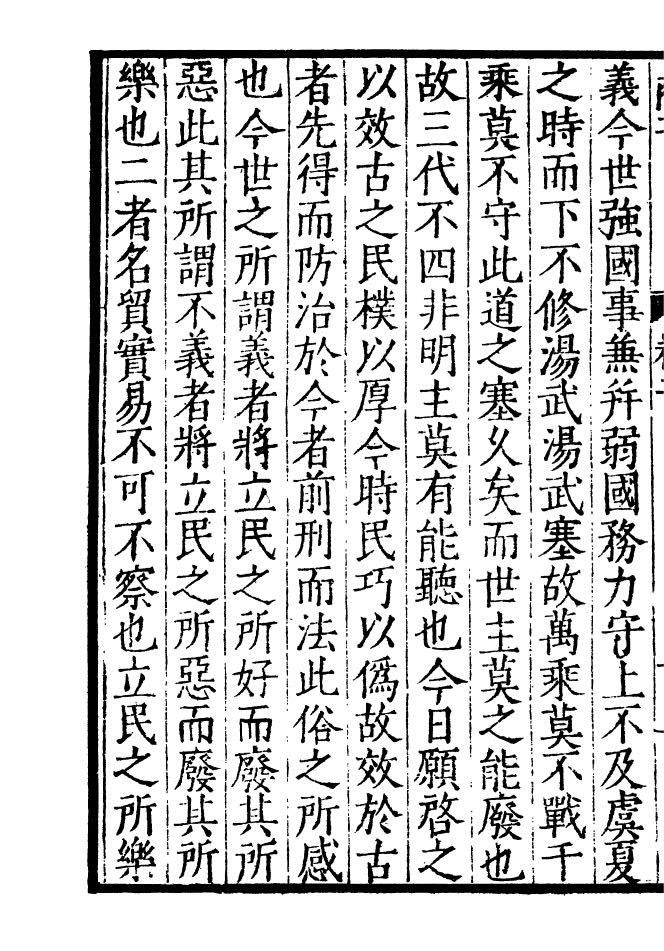 義今世強國事兼并弱國務力守上不及虞夏
之時而下不修湯武湯武塞故萬乘莫不戰千
乘莫不守此道之塞乆矣而世主莫之能廢也
故三代不四非明主莫有能聽也今日願啓之
以效古之民樸以厚今時民巧以僞故效於古
者先得而防治於今者前刑而法此俗之所感
也今世之所謂義者將立民之所好而廢其所
惡此其所謂不義者將立民之所惡而廢其所
樂也二者名貿實易不可不察也立民之所樂